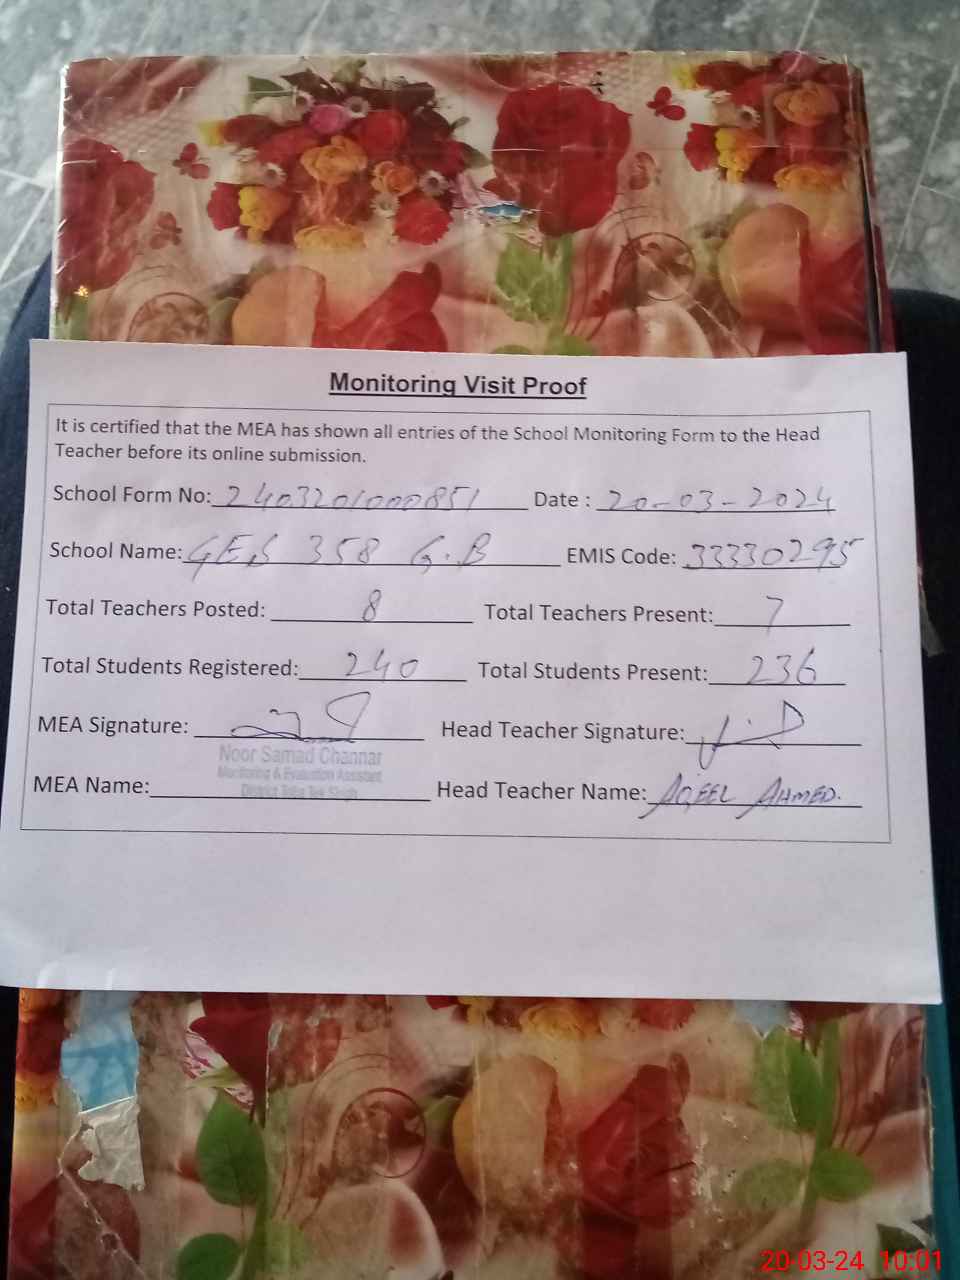 Monitoring Visit Proof
It is certified that the MEA has shown all entries of the School Monitoring Form to the Head
Teacher before its online submission.
School Form No: 2403201000851 Date : 20-03-2024
School Name: GES 358 G.B EMIS Code: 33330295
Total Teachers Posted: 8 Total Teachers Present: 7
Total Students Registered: 240 Total Students Present: 236
MEA Signature: Head Teacher Signature:
Noor Samad Channar
Monitoring & Evaluation Assistant
District Toba Tek Singh
MEA Name: Head Teacher Name: AQEEL AHMED.
20-03-24 10:01